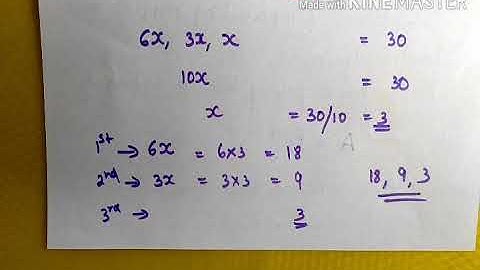 Made with KINEMASTER
6x, 3x, x = 30
10x = 30
x = 30/10 = 3
1st → 6x = 6×3 = 18
2nd → 3x = 3×3 = 9
18, 9, 3
3rd → 3
A